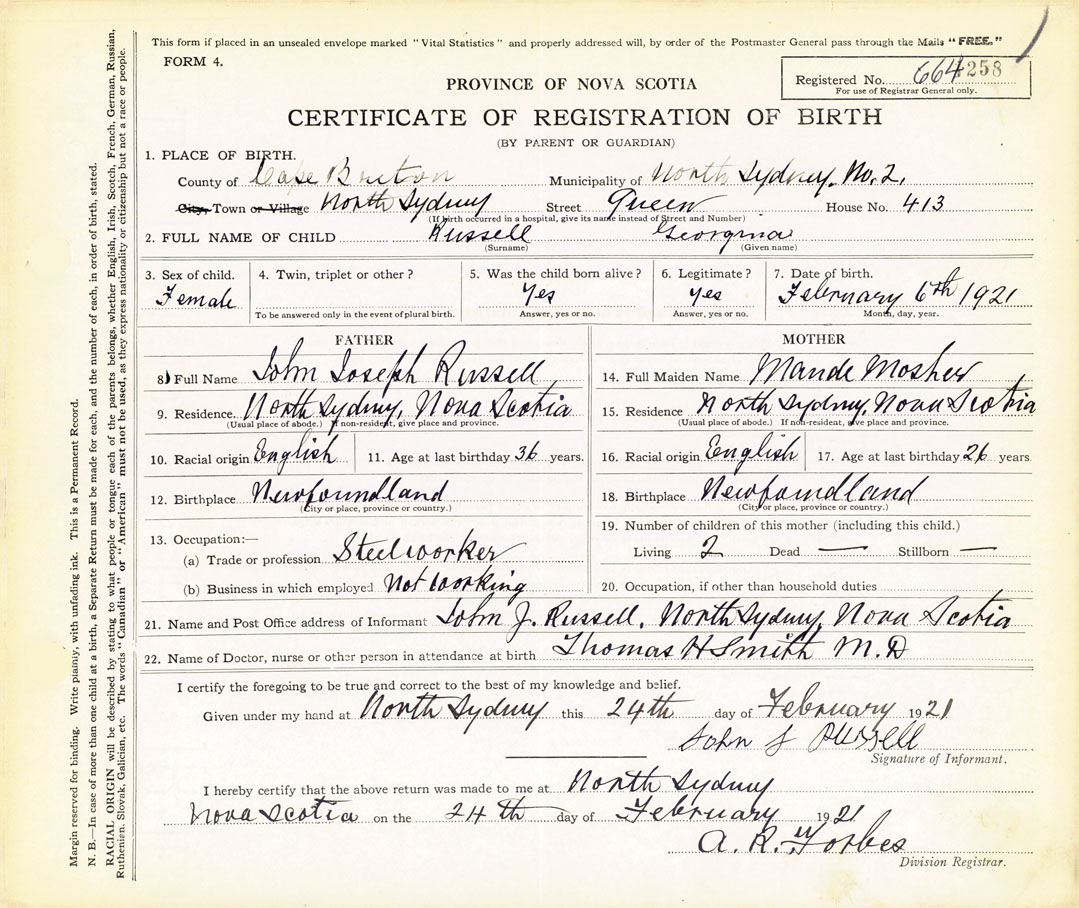 This form if placed in an unsealed envelope marked "Vital Statistics" and properly addressed will, by order of the Postmaster General pass through the Mails "FREE."
FORM 4.
Registered No. 664 258
For use of Registrar General only.
PROVINCE OF NOVA SCOTIA
CERTIFICATE OF REGISTRATION OF BIRTH
(BY PARENT OR GUARDIAN)
1. PLACE OF BIRTH.
County of Cape Breton Municipality of North Sydney. No. 2.
City, Town or Village North Sydney Street Queen House No. 413
(If birth occurred in a hospital, give its name instead of Street and Number)
2. FULL NAME OF CHILD Russell Georgina
(Surname) (Given name)
3. Sex of child. 4. Twin, triplet or other? 5. Was the child born alive? 6. Legitimate? 7. Date of birth.
Female Yes Yes February 6th 1921
To be answered only in the event of plural birth. Answer, yes or no. Answer, yes or no. Month, day, year.
FATHER
8. Full Name John Joseph Russell
9. Residence. North Sydney, Nova Scotia
(Usual place of abode.) If non-resident, give place and province.
10. Racial origin English 11. Age at last birthday 36 years.
12. Birthplace Newfoundland
(City or place, province or country.)
13. Occupation:—
(a) Trade or profession Steelworker
(b) Business in which employed Not working
MOTHER
14. Full Maiden Name Maude Mosher
15. Residence North Sydney, Nova Scotia
(Usual place of abode.) If non-resident, give place and province.
16. Racial origin English 17. Age at last birthday 26 years.
18. Birthplace Newfoundland
(City or place, province or country.)
19. Number of children of this mother (including this child.)
Living 2 Dead — Stillborn —
20. Occupation, if other than household duties
21. Name and Post Office address of Informant John J. Russell, North Sydney, Nova Scotia
22. Name of Doctor, nurse or other person in attendance at birth Thomas H Smith M.D
I certify the foregoing to be true and correct to the best of my knowledge and belief.
Given under my hand at North Sydney this 24th day of February 1921
John J Russell
Signature of Informant.
I hereby certify that the above return was made to me at North Sydney
Nova Scotia on the 24th day of February 1921
A. R. Forbes
Division Registrar.
Margin reserved for binding. Write plainly, with unfading ink. This is a Permanent Record.
N. B.—In case of more than one child at a birth, a Separate Return must be made for each, and the number of each, in order of birth, stated.
RACIAL ORIGIN will be described by stating to what people or tongue each of the parents belongs, whether English, Irish, Scotch, French, German, Russian,
Ruthenian, Slovak, Galician, etc. The words "Canadian" or "American" must not be used, as they express nationality or citizenship but not a race or people.